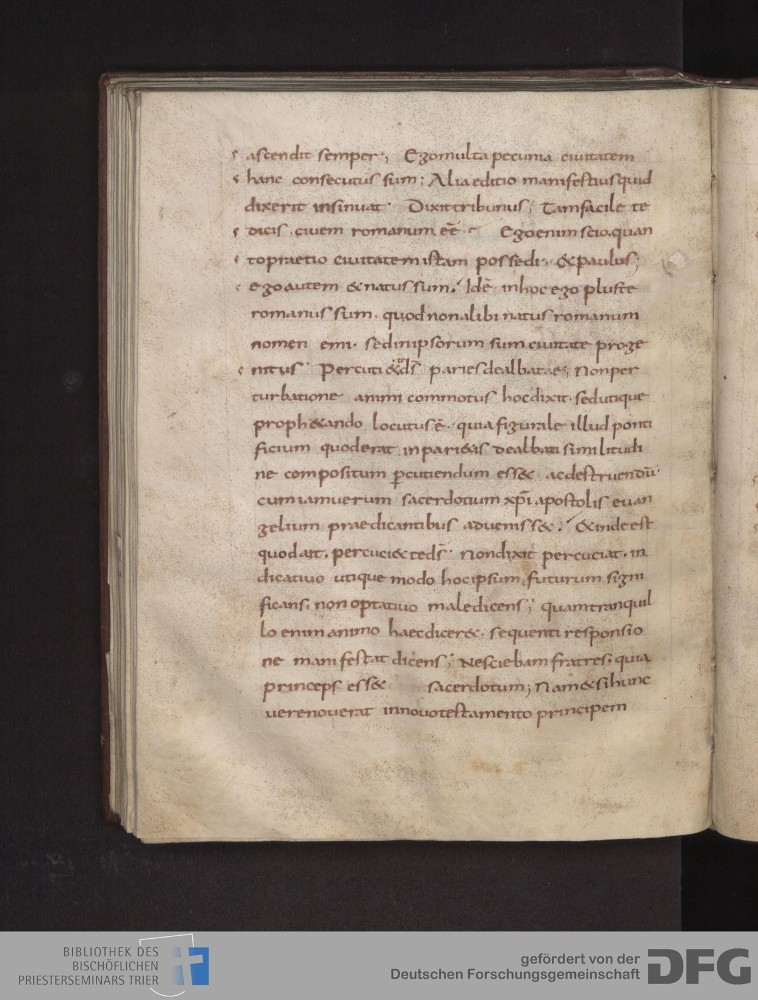 ascendit semper; Ego multa pecunia ciuitatem
hanc consecutus sum; Alia editio manifestius quid
dixerit insinuat. Dixit tribunus; Tam facile te
dicis ciuem romanum eē. Ego enim scio quan
to praetio ciuitatem istam possedi; & paulus;
ego autem & natus sum. Idē in hoc ego plus te
romanus sum. quod non alibi natus romanum
nomen emi. sed in ipsorum sum ciuitate proge
nitus. Percuti& ds̄ paries dealbatae; Non per
turbatione animi commotus hoc dixit. sed utique
proph&ando locutus ē. quia figurale illud ponti
ficium quod erat in pari&is dealbati similitudi
ne compositum ꝑcutiendum ess& ac destruendū.
cum iam uerum sacerdotium xp̄i apostolis euan
gelium praedicantibus aduenisse&. & inde est
quod ait. percuci& te ds̄. Non dixit percuciat. in
dicatiuo utique modo hoc ipsum futurum signi
ficans. non optatiuo maledicens; quam tranquil
lo enim animo haec dicer&. sequenti responsio
ne manifestat dicens; Nesciebam fratres. quia
princeps ess& sacerdotum; Nam & si hunc
uere nouerat in nouo testamento principem
BIBLIOTHEK DES
BISCHÖFLICHEN
PRIESTERSEMINARS TRIER
gefördert von der
Deutschen Forschungsgemeinschaft
DFG